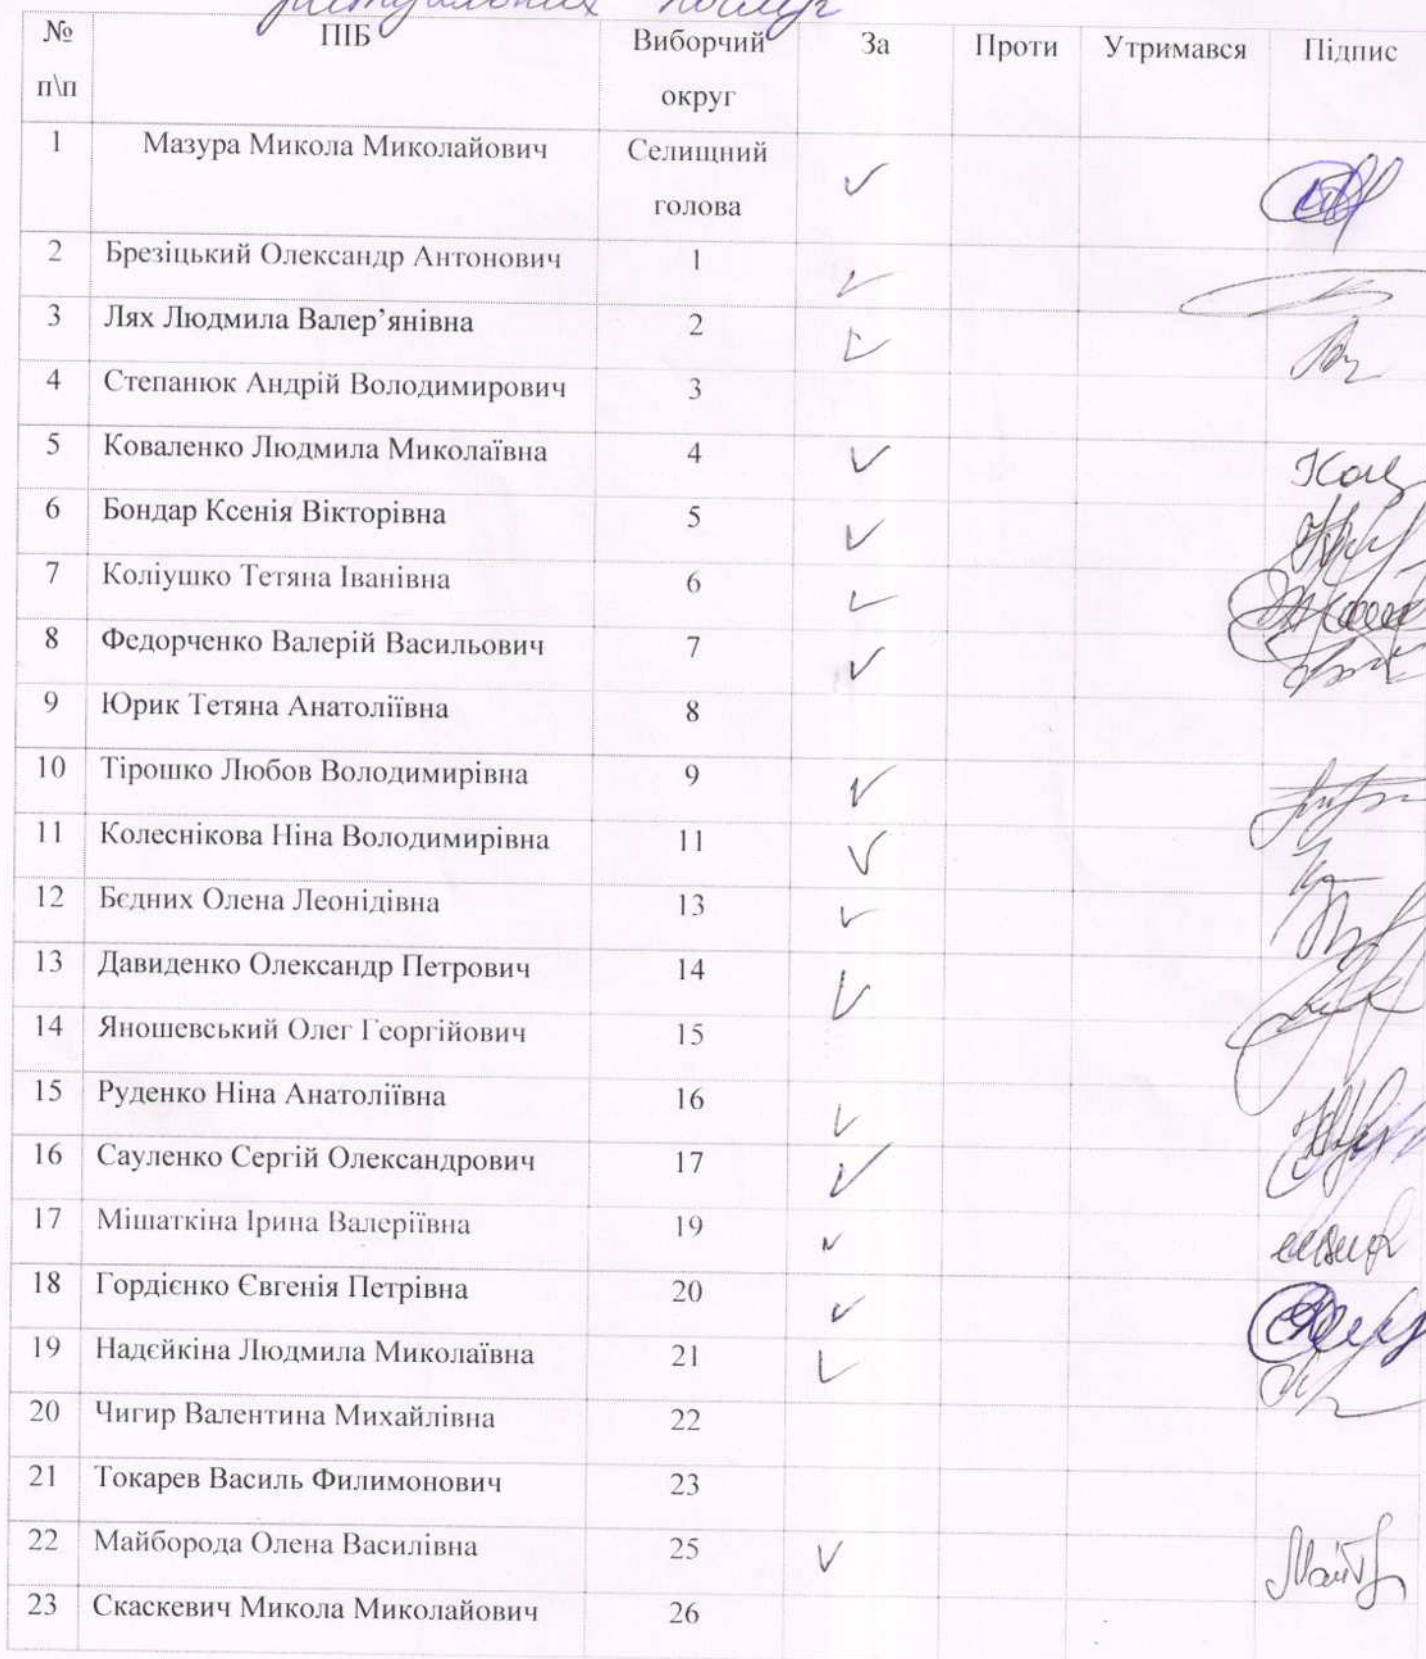 ритуальних послуг
№ п\п ПІБ Виборчий округ За Проти Утримався Підпис
1 Мазура Микола Миколайович Селищний голова ✓
2 Брезіцький Олександр Антонович 1 ✓
3 Лях Людмила Валер’янівна 2 ✓
4 Степанюк Андрій Володимирович 3
5 Коваленко Людмила Миколаївна 4 ✓
6 Бондар Ксенія Вікторівна 5 ✓
7 Коліушко Тетяна Іванівна 6 ✓
8 Федорченко Валерій Васильович 7 ✓
9 Юрик Тетяна Анатоліївна 8
10 Тірошко Любов Володимирівна 9 ✓
11 Колеснікова Ніна Володимирівна 11 ✓
12 Бєдних Олена Леонідівна 13 ✓
13 Давиденко Олександр Петрович 14 ✓
14 Яношевський Олег Георгійович 15
15 Руденко Ніна Анатоліївна 16 ✓
16 Сауленко Сергій Олександрович 17 ✓
17 Мішаткіна Ірина Валеріївна 19 ✓
18 Гордієнко Євгенія Петрівна 20 ✓
19 Надєйкіна Людмила Миколаївна 21 ✓
20 Чигир Валентина Михайлівна 22
21 Токарев Василь Филимонович 23
22 Майборода Олена Василівна 25 ✓
23 Скаскевич Микола Миколайович 26